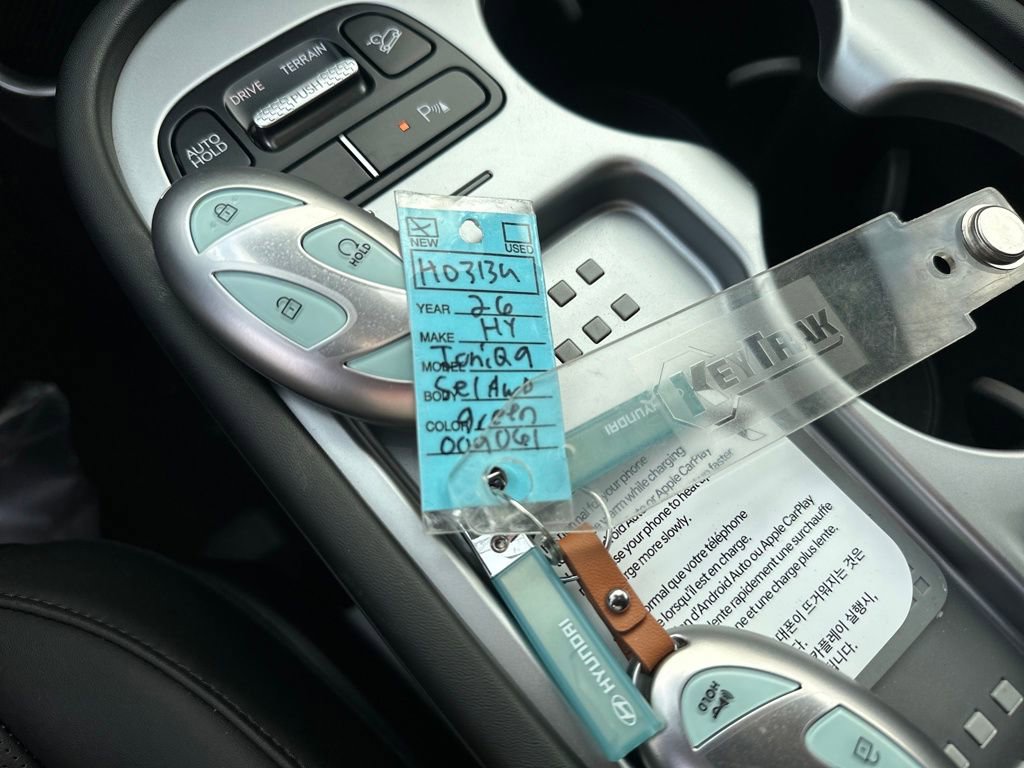 TERRAIN
DRIVE
PUSH
AUTO
HOLD
P
HOLD
NEW
USED
H03134
YEAR 26
MAKE HY
MODEL IoniQ9
BODY Sel Awd
COLOR Green
009061
KEYTRAK
HYUNDAI
your phone
warm while charging
Auto or Apple CarPlay
se your phone to heat up faster
rge more slowly.
ormal que votre téléphone
e lorsqu'il est en charge.
n d'Android Auto ou Apple CarPlay
lente rapidement une surchauffe
ne et une charge plus lente.
대폰이 뜨거워지는 것은
다.
카플레이 실행시,
니다.
HYUNDAI
HOLD